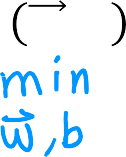 (→ )
min
w⃗,b